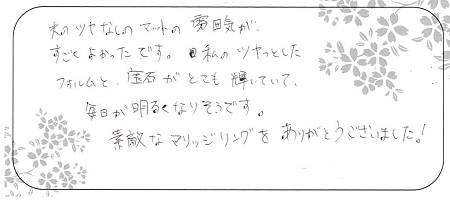 夫のツヤなしのマットの雰囲気が、
すごくよかったです。私のツヤっとした
フォルムと、宝石がとても輝いていて、
毎日が明るくなりそうです。
素敵なマリッジリングをありがとうございました!